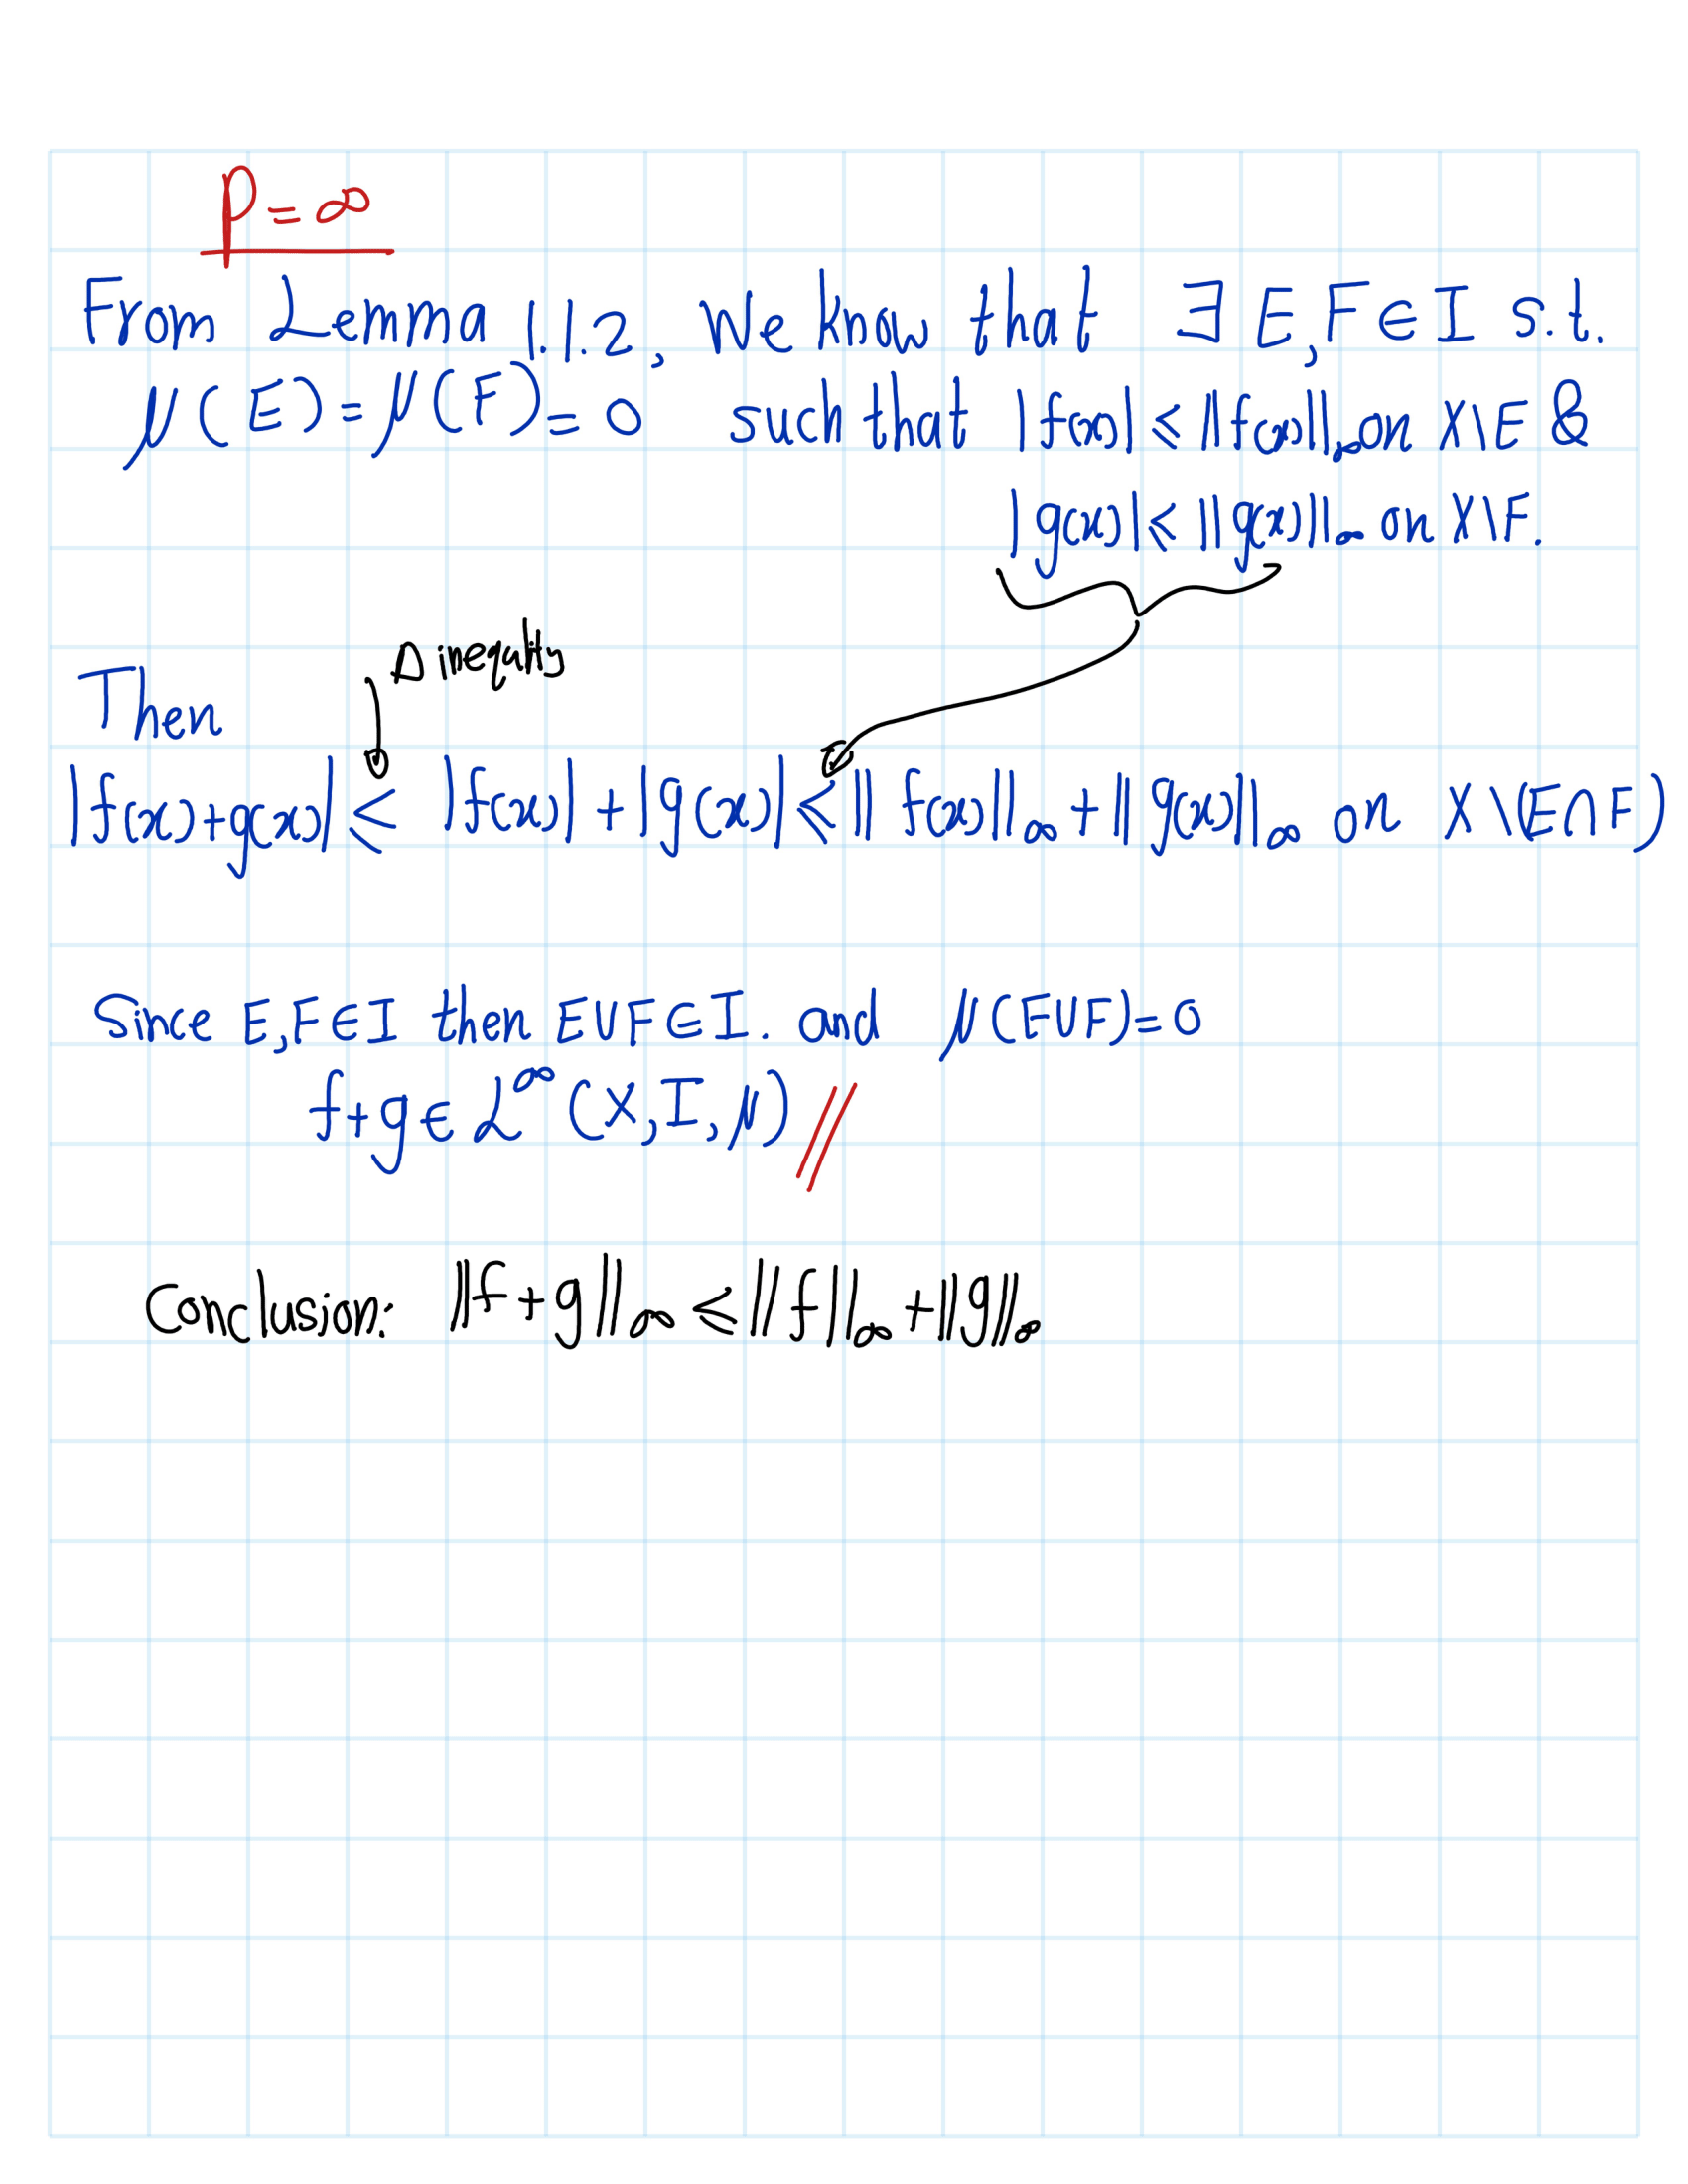 P=∞
From Lemma 1.1.2, We know that ∃ E,F∈I s.t.
μ(E)=μ(F)=0 such that |f(x)|≤||f(x)||∞ on X\E &
|g(x)|≤||g(x)||∞ on X\F.
Δ inequality
Then
|f(x)+g(x)| ≤ |f(x)|+|g(x)|≤||f(x)||∞+||g(x)||∞ on X\(E∩F)
Since E,F∈I then EUF∈I. and μ(EUF)=0
f+g∈ℒ^∞(X,I,μ)//
Conclusion: ||f+g||∞≤||f||∞+||g||∞